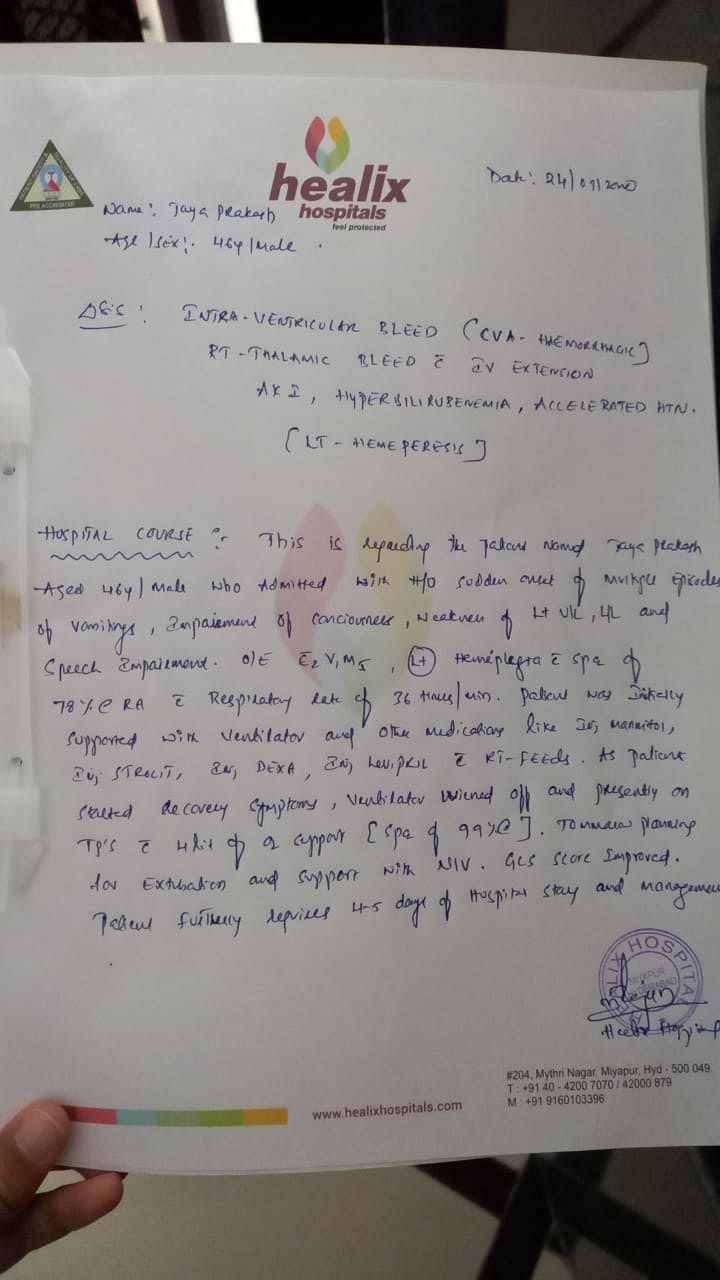 healix
hospitals
feel protected
PRE ACCREDITED
Date: 24/07/2020
Name: Jaya Prakash
Age/Sex: 46y/Male.
INTRA-VENTRICULAR BLEED (CVA-HAEMORRHAGIC]
RT-THALAMIC BLEED c̄ IV EXTENSION
AKI, HYPERBILIRUBENEMIA, ACCELERATED HTN.
[LT-HEMEPERESIS]
HOSPITAL COURSE: This is regarding the Patient Named Jaya Prakash
Aged 46y/Male who Admitted with H/O Sudden onset of Multiple Episodes
of Vomitings, Impairement of Conciousness, Weakness of Lt U/L, L/L and
Speech Impairement. O/E E2V1M5, Lt Hemeplegia c̄ Spo2 of
78% @ RA c̄ Respiratory Rate of 36 /min. Patient was Initially
Supported with Ventilator and other medications like Inj Mannitol,
Inj STROCIT, Inj DEXA, Inj Levipril c̄ RT-FEEDs. As Patient
Started Recovery Symptoms, Ventilator Weined off and presently on
c̄ 4 lit of O2 Support [Spo2 of 99% @]. Tommorow planning
for Extubation and Support with NIV. GCS Score Improved.
Patient Furtherly requires 4-5 days of Hospital Stay and management
.
HEALIX HOSPITAL
MIYAPUR
HYDERABAD
#204, Mythri Nagar, Miyapur, Hyd - 500 049.
T : +91 40 - 4200 7070 / 42000 879
M : +91 9160103396
www.healixhospitals.com